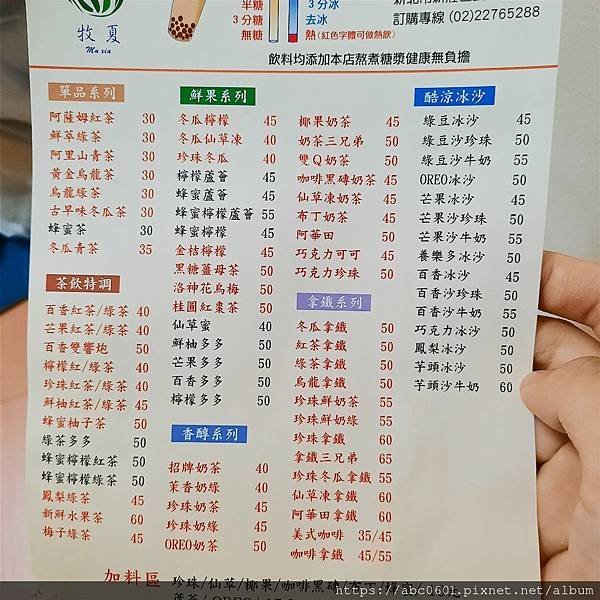 牧夏
Mu xia
半糖
3分糖
無糖
3分冰
去冰
熱(紅色字體可做熱飲)
訂購專線 (02)22765288
飲料均添加本店熬煮糖漿健康無負擔
單品系列
阿薩姆紅茶 30
鮮萃綠茶 30
阿里山青茶 30
黃金烏龍茶 30
烏龍綠茶 30
古早味冬瓜茶 30
蜂蜜茶 30
冬瓜青茶 35
茶飲特調
百香紅茶/綠茶 40
芒果紅茶/綠茶 40
百香雙響炮 50
檸檬紅/綠茶 40
珍珠紅茶/綠茶 40
鮮柚紅茶/綠茶 45
蜂蜜柚子茶 50
綠茶多多 50
蜂蜜檸檬紅茶 50
蜂蜜檸檬綠茶 50
鳳梨綠茶 45
新鮮水果茶 60
梅子綠茶 45
鮮果系列
冬瓜檸檬 45
冬瓜仙草凍 40
珍珠冬瓜 40
檸檬蘆薈 45
蜂蜜蘆薈 45
蜂蜜檸檬蘆薈 55
蜂蜜檸檬 45
金桔檸檬 45
黑糖薑母茶 50
洛神花烏梅 50
桂圓紅棗茶 50
仙草蜜 40
鮮柚多多 50
芒果多多 50
百香多多 50
檸檬多多 50
香醇系列
招牌奶茶 40
茉香奶綠 40
珍珠奶茶 45
珍珠奶綠 45
OREO奶茶 50
椰果奶茶 45
奶茶三兄弟 50
雙Q奶茶 50
咖啡黑磚奶茶 45
仙草凍奶茶 45
布丁奶茶 45
阿華田 45
巧克力可可 45
巧克力珍珠 50
拿鐵系列
冬瓜拿鐵 50
紅茶拿鐵 50
綠茶拿鐵 50
烏龍拿鐵 50
珍珠鮮奶茶 55
珍珠鮮奶綠 55
珍珠拿鐵 60
拿鐵三兄弟 65
珍珠冬瓜拿鐵 55
仙草凍拿鐵 60
阿華田拿鐵 60
美式咖啡 35/45
咖啡拿鐵 45/55
酷涼冰沙
綠豆冰沙 45
綠豆沙珍珠 50
綠豆沙牛奶 55
OREO冰沙 50
芒果冰沙 45
芒果沙珍珠 50
芒果沙牛奶 55
養樂多冰沙 50
百香冰沙 45
百香沙珍珠 50
百香沙牛奶 55
巧克力冰沙 50
鳳梨冰沙 50
芋頭冰沙 50
芋頭沙牛奶 60
加料區 珍珠/仙草/椰果/咖啡黑磚/布丁/
https://abc0601.pixnet.net/album